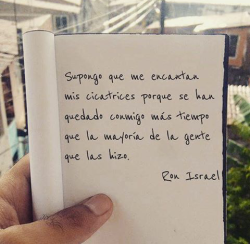 Supongo que me encantan
mis cicatrices porque se han
quedado conmigo más tiempo
que la mayoría de la gente
que las hizo.
Ron Israel